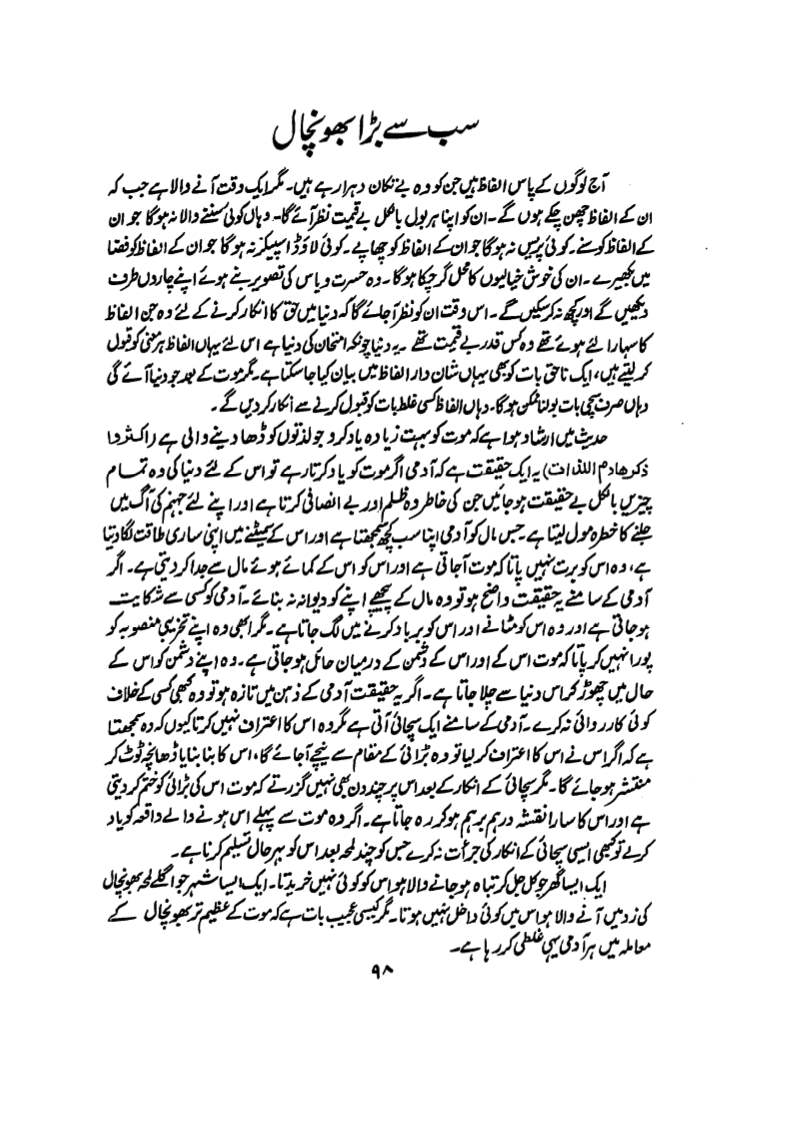 سب سے بڑا بھونچال
آج لوگوں کے پاس الفاظ ہیں جن کو وہ بے تکان دہرا رہے ہیں۔ مگر ایک وقت آنے والا ہے جب کہ
ان کے الفاظ چھن چکے ہوں گے۔ ان کو اپنا ہر بول بالکل بے قیمت نظر آئے گا۔ وہاں کوئی سننے والا نہ ہوگا جو ان
کے الفاظ کو سنے۔ کوئی پریس نہ ہوگا جو ان کے الفاظ کو چھاپے۔ کوئی لاؤڈ اسپیکر نہ ہوگا جو ان کے الفاظ کو فضا
میں بکھیرے۔ ان کی خوش خیالیوں کا محل گر چکا ہوگا۔ وہ حسرت ویاس کی تصویر بنے ہوئے اپنے چاروں طرف
دیکھیں گے اور کچھ نہ کرسکیں گے۔ اس وقت ان کو نظر آجائے گا کہ دنیا میں حق کا انکار کرنے کے لئے وہ جن الفاظ
کا سہارا لئے ہوئے تھے وہ کس قدر بے قیمت تھے۔ یہ دنیا چونکہ امتحان کی دنیا ہے اس لئے یہاں الفاظ ہر معنی کو قبول
کر لیتے ہیں، ایک ناحق بات کو بھی یہاں شان دار الفاظ میں بیان کیا جاسکتا ہے۔ مگر موت کے بعد جو دنیا آئے گی
وہاں صرف سچی بات بولنا ممکن ہوگا۔ وہاں الفاظ کسی غلط بات کو قبول کرنے سے انکار کردیں گے۔
حدیث میں ارشاد ہوا ہے کہ موت کو بہت زیادہ یاد کرو جو لذتوں کو ڈھا دینے والی ہے (اکثروا
ذکر هادم اللذات) یہ ایک حقیقت ہے کہ آدمی اگر موت کو یاد کرتا رہے تو اس کے لئے دنیا کی وہ تمام
چیزیں بالکل بے حقیقت ہوجائیں جن کی خاطر وہ ظلم اور بے انصافی کرتا ہے اور اپنے لئے جہنم کی آگ میں
جلنے کا خطرہ مول لیتا ہے۔ جس مال کو آدمی اپنا سب کچھ سمجھتا ہے اور اس کے سمیٹنے میں اپنی ساری طاقت لگا دیتا
ہے، وہ اس کو برت نہیں پاتا کہ موت آجاتی ہے اور اس کو اس کے کمائے ہوئے مال سے جدا کردیتی ہے۔ اگر
آدمی کے سامنے یہ حقیقت واضح ہو تو وہ مال کے پیچھے اپنے کو دیوانہ نہ بنائے۔ آدمی کو کسی سے شکایت
ہوجاتی ہے اور وہ اس کو مٹانے اور اس کو برباد کرنے میں لگ جاتا ہے۔ مگر ابھی وہ اپنے تخریبی منصوبہ کو
پورا نہیں کر پاتا کہ موت اس کے اور اس کے دشمن کے درمیان حائل ہوجاتی ہے۔ وہ اپنے دشمن کو اس کے
حال میں چھوڑ کر اس دنیا سے چلا جاتا ہے۔ اگر یہ حقیقت آدمی کے ذہن میں تازہ ہو تو وہ کبھی کسی کے خلاف
کوئی کارروائی نہ کرے۔ آدمی کے سامنے ایک سچائی آتی ہے مگر وہ اس کا اعتراف نہیں کرتا کیوں کہ وہ سمجھتا
ہے کہ اگر اس نے اس کا اعتراف کر لیا تو وہ بڑائی کے مقام سے نیچے آجائے گا، اس کا بنا بنایا ڈھانچہ ٹوٹ کر
منتشر ہو جائے گا۔ مگر سچائی کے انکار کے بعد اس پر چند دن بھی نہیں گزرتے کہ موت اس کی بڑائی کو ختم کردیتی
ہے اور اس کا سارا نقشہ درہم برہم ہو کر رہ جاتا ہے۔ اگر وہ موت سے پہلے اس ہونے والے واقعہ کو یاد
کرلے تو کبھی ایسی سچائی کے انکار کی جرأت نہ کرے جس کو چند لمحہ بعد اس کو بہرحال تسلیم کرنا ہے۔
ایک ایسا گھر جو کل جل کر تباہ ہو جانے والا ہو اس کو کوئی نہیں خریدتا۔ ایک ایسا شہر جو اگلے لمحہ بھونچال
کی زد میں آنے والا ہو اس میں کوئی داخل نہیں ہوتا۔ مگر کیسی عجیب بات ہے کہ موت کے عظیم تر بھونچال کے
معاملہ میں ہر آدمی یہی غلطی کر رہا ہے۔
۹۸